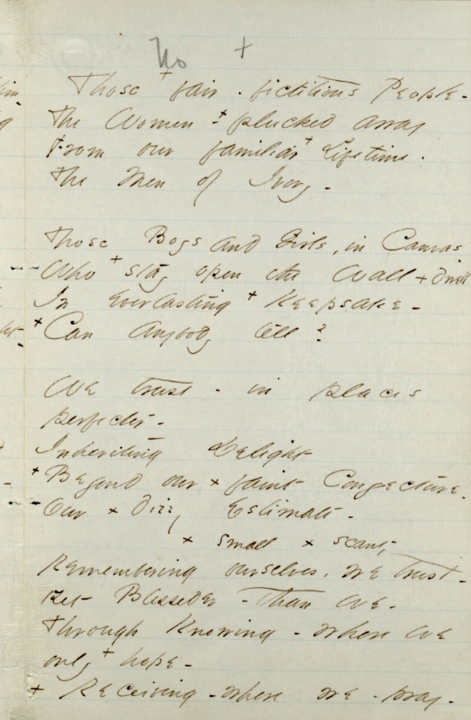 No +
Those + fair - fictitious People -
The Women + plucked away
From our familiar + Lifetime -
The Men of Ivory -
Those Boys and Girls, in Canvas
Who + stay upon the Wall + Dwell
In Everlasting + Keepsake -
+ Can Anybody tell?
We trust - in places
perfecter -
Inheriting Delight
+ Beyond our + faint Conjecture -
Our + Dizzy Estimate -
+ small + scanty
Remembering ourselves, we trust -
Yet Blesseder - Than We -
Through Knowing - where We
only + hope -
+ Receiving - where we - pray -